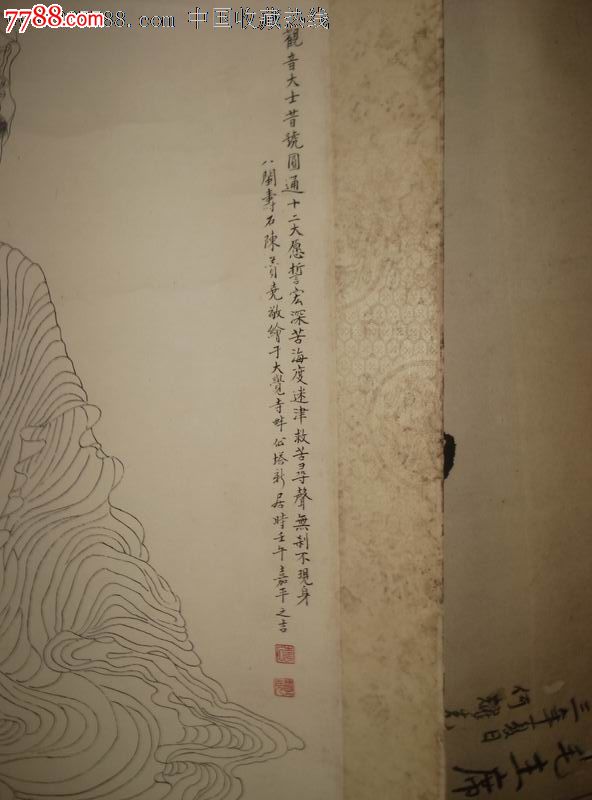 7788.com
7788.com 中国收藏热线
觀音大士昔號圓通十二大愿誓宏深苦海度迷津救苦尋聲無刹不現身
八閩壽石陳敬繪于大覺寺畔公塔新居時壬午嘉平之吉
何
三年十日
毛主席